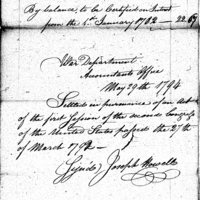 By balance to be Certified on Interest
from the 1st January 1782 — 22.67
War Department
Accountants Office
May 29th 1794.
Settled in pursuance of an Act
of the first Session of the second Congress
of the United States passed the 27th
of March 1792 —
(Signed) Joseph Howell